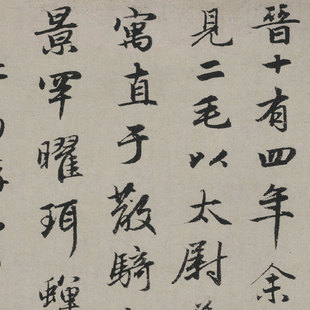 晉十有四年余
見二毛以太尉
寓直于散騎
景罕曜珥蟬